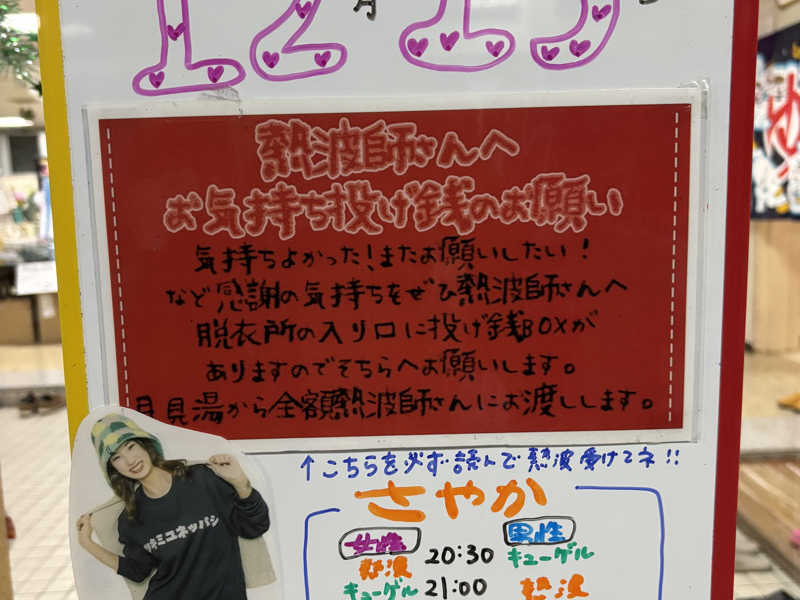 12月15日
熱波師さんへ
お気持ち投げ銭のお願い
気持ちよかった!またお願いしたい!
など感謝の気持ちをぜひ熱波師さんへ
脱衣所の入り口に投げ銭BOXが
ありますのでそちらへお願いします。
月見湯から全額熱波師さんにお渡しします。
↑こちらを必ず読んで熱波受けてネ!!
さやか
女性 男性
熱波 20:30 キューゲル
キューゲル 21:00 熱波
ツキミユネッパシ